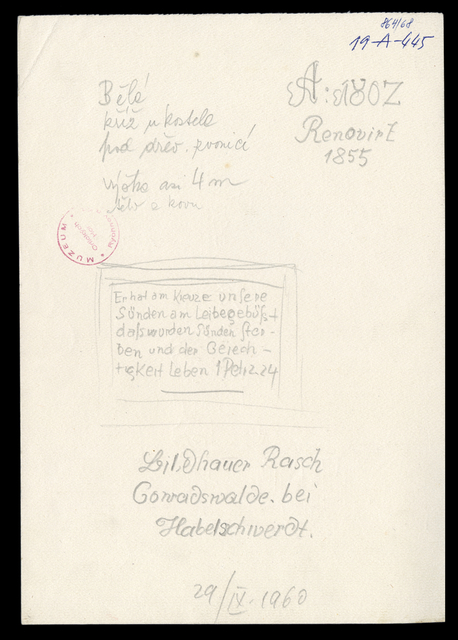 864/68
19-A-445
Bělé
kříž u kostela
pod dřev. zvonicí
výška asi 4 m
tělo z kovu
A: 1802
Renovirt
1855
MUZEUM
Er hat am Kreuze unsere
Sünden am Leibe gebüßt
daß wir den Sünden ster-
ben und der Gerech-
tigkeit leben 1 Petr. 2.24
Bildhauer Rasch
Conradswalde. bei
Habelschwerdt.
29/IX. 1960